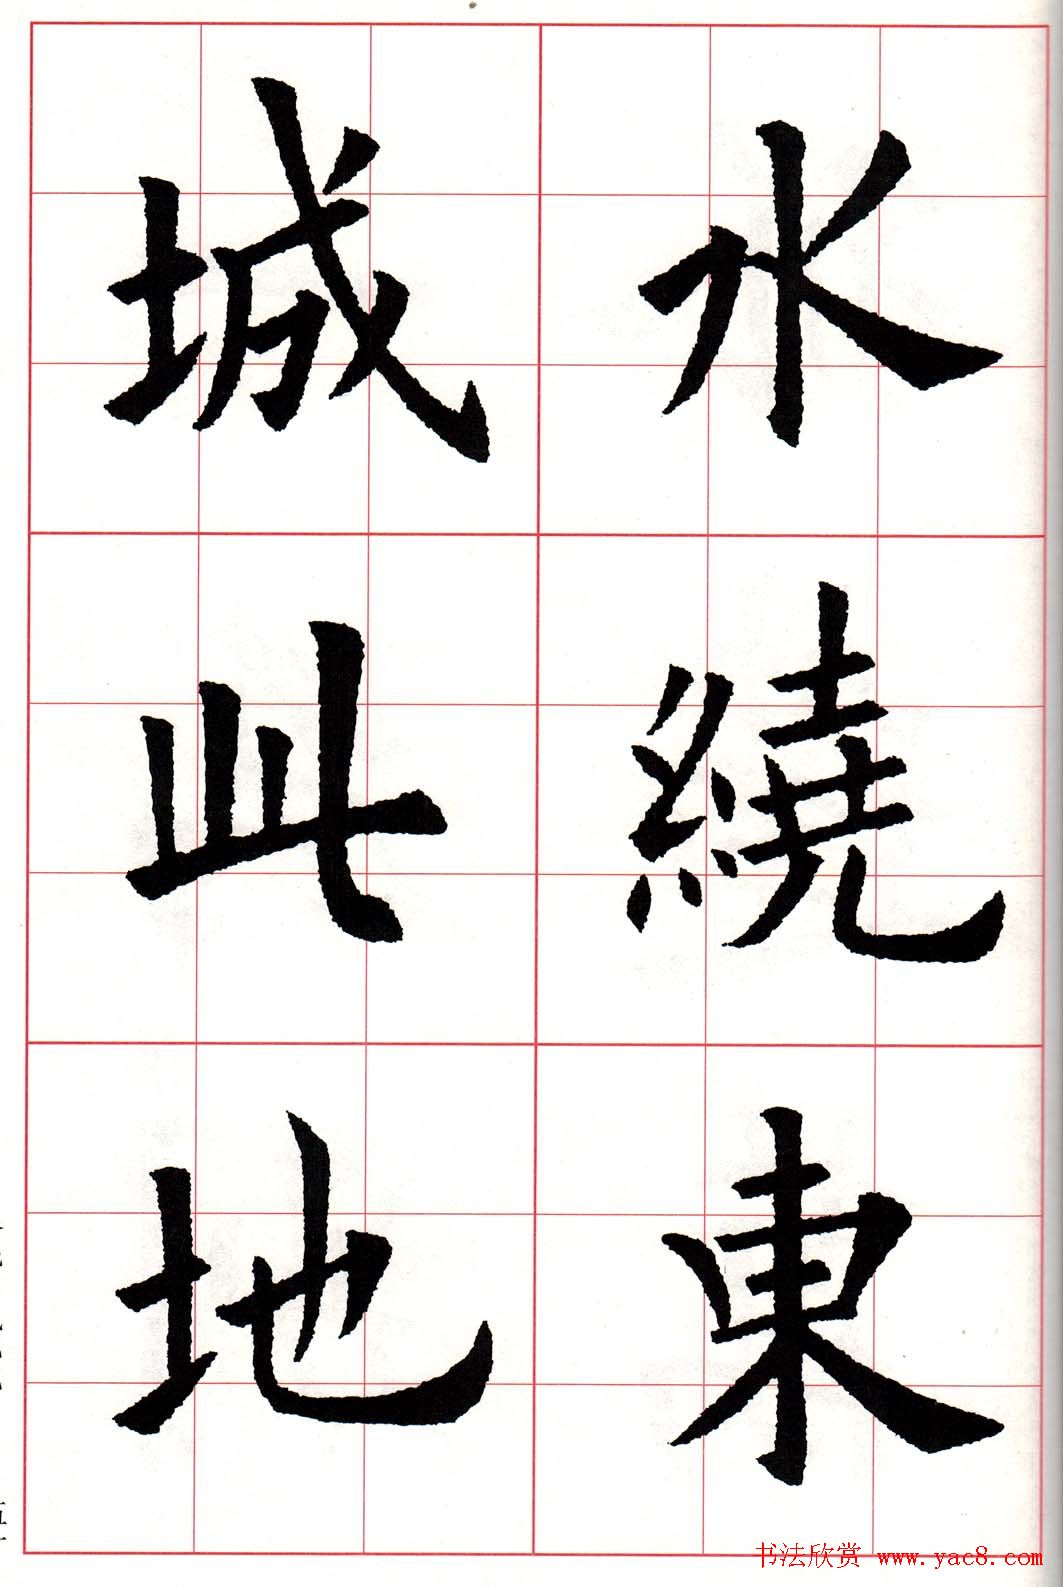 水繞東
城此地
书法欣赏 www.yac8.com